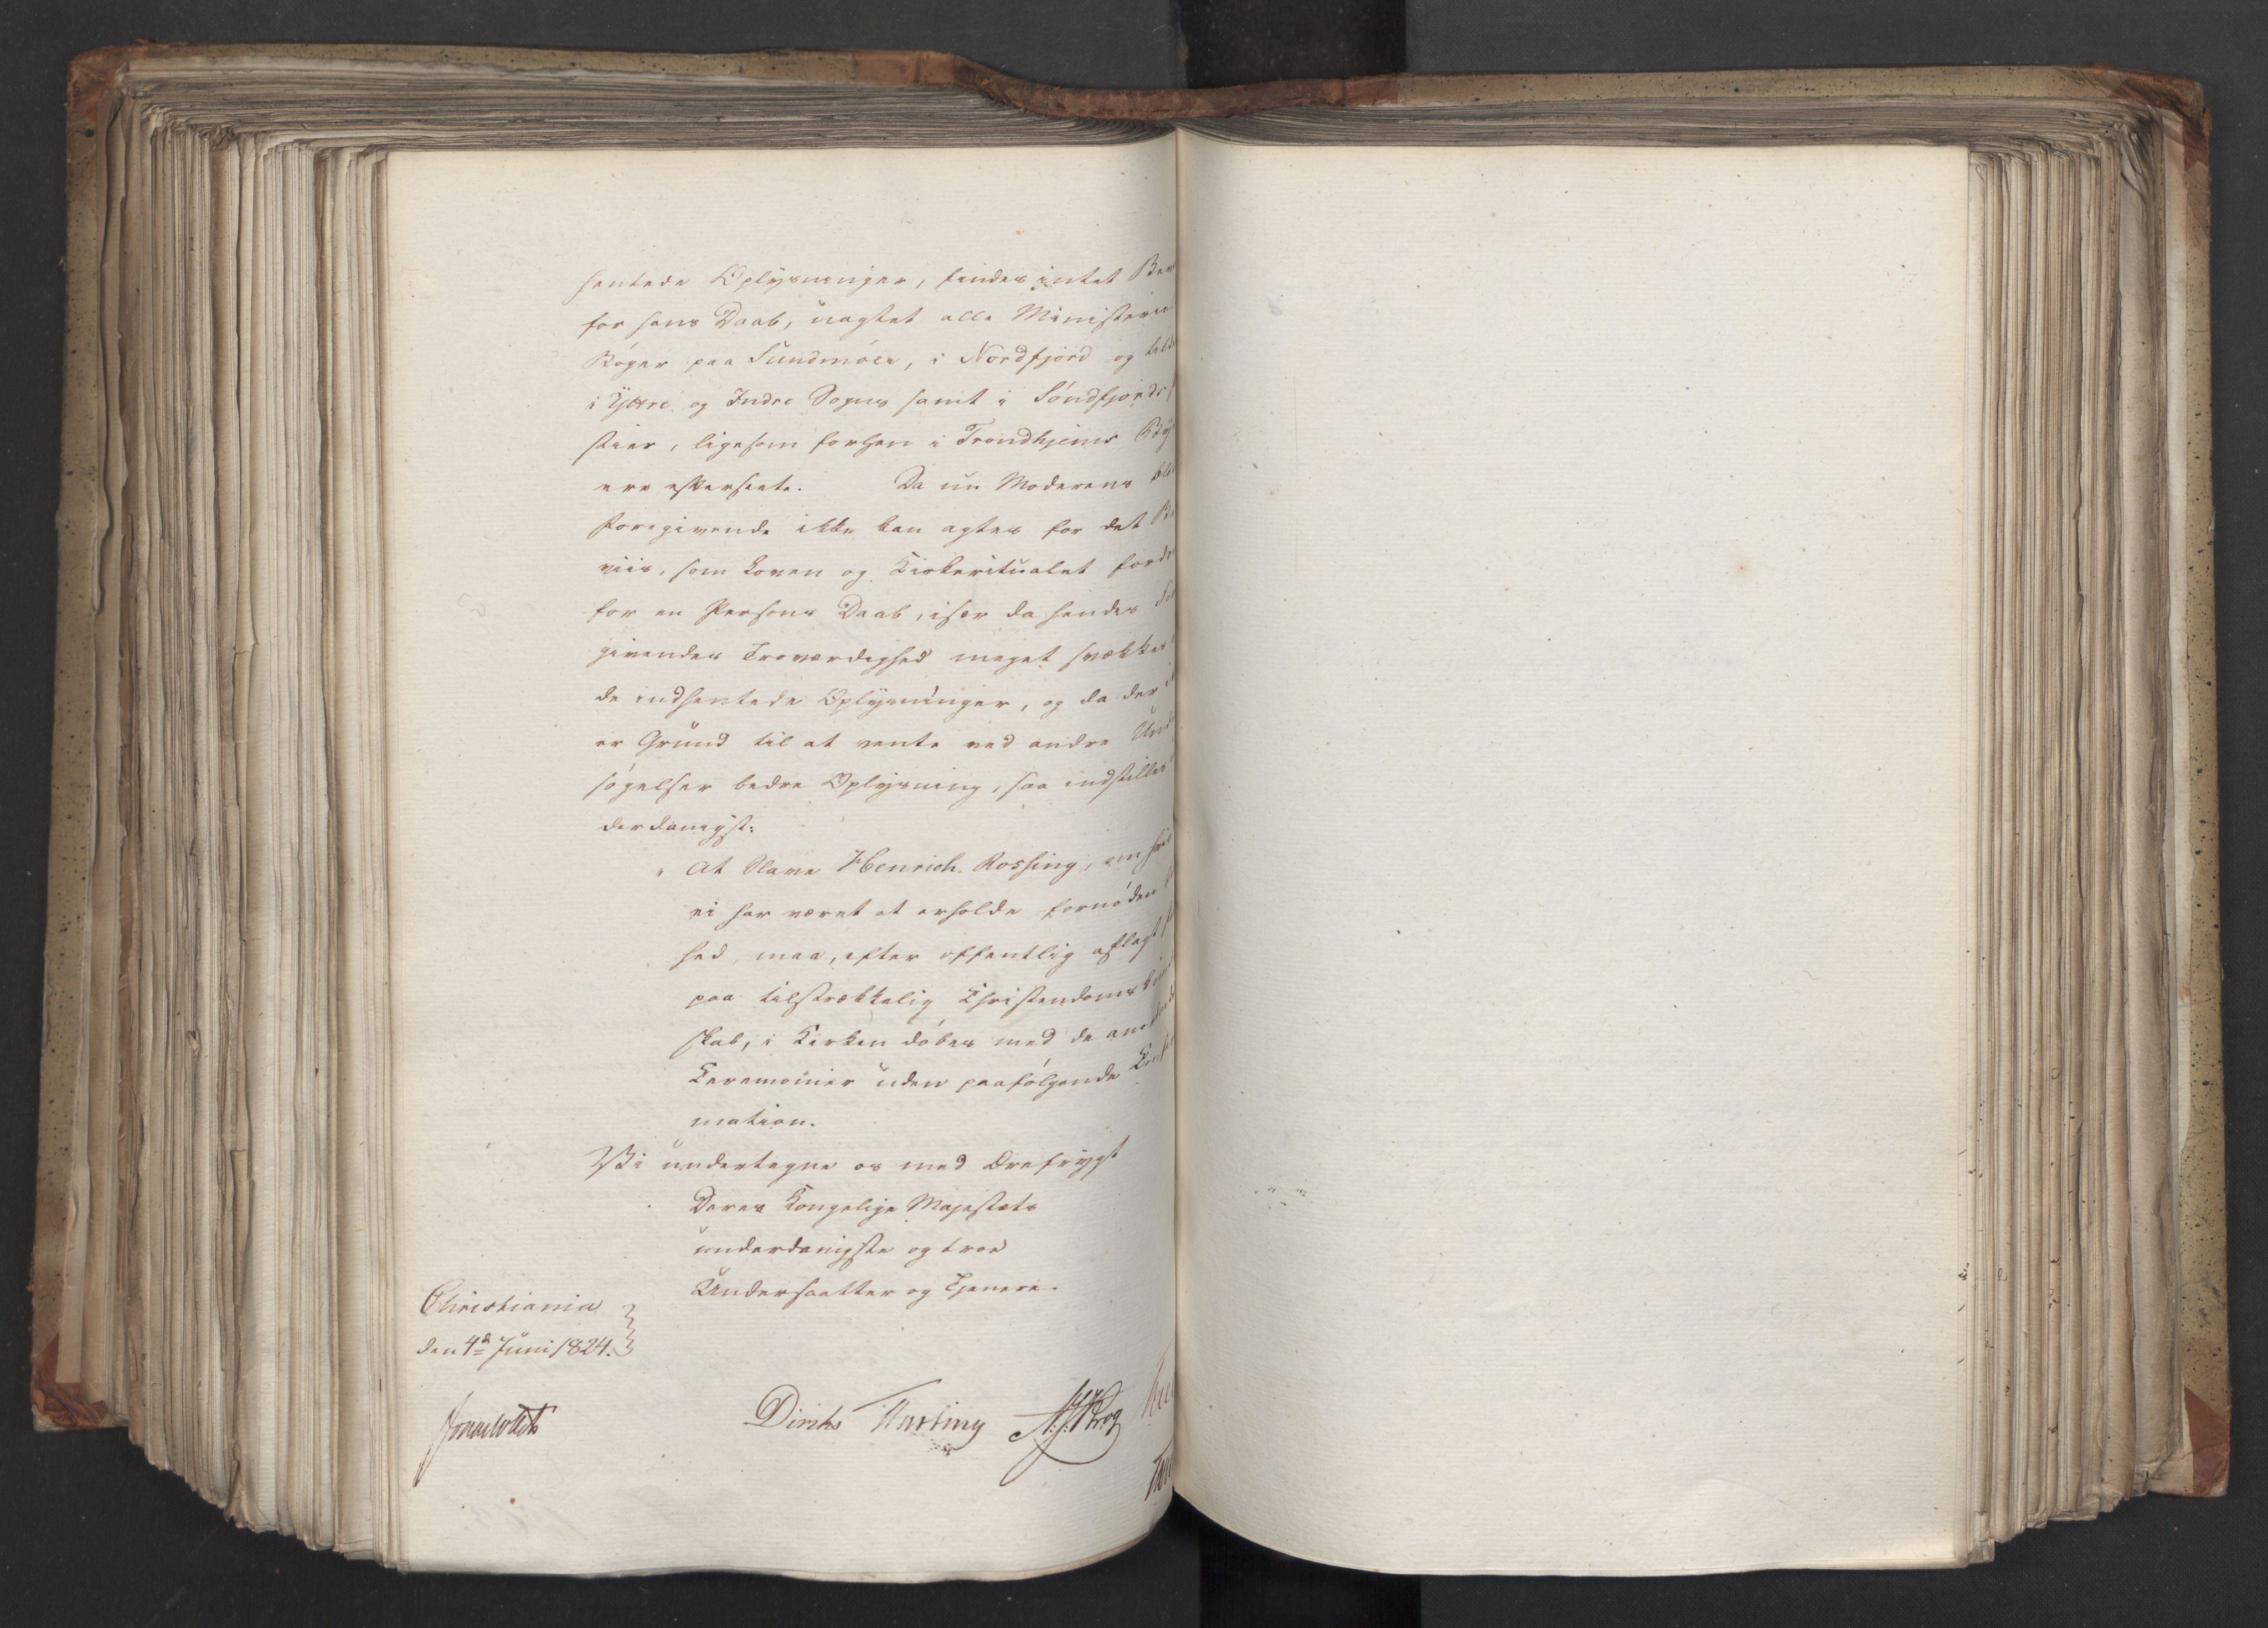 hentede Oplysninger, findes intet
for hans Daab, uagtet alle Ministerial
Bøger paa Sundmöer, i Nordfjord og
i Yttre og Indre Sogns samt i Söndfjords
stier, ligesom forhen i Trondhjems
ere efterseete. Da nu Moderens
foregivende ikke kan agtes for det Be
viis, som Loven og Kirkeritualet fordre
for en Persons Daab, især da hendes
givendes Troværdighed meget svækkes
de indhentede Oplysninger, og da der
er Grund til at vente ved andre Under
søgelser bedre Oplysning, saa indstilles
derdanigst:
" At Slave Henrich Rossing, om hvis
ei har været at erholde fornöden
hed, maa, efter offentlig aflagt
paa tilstrækkelig Christendoms
skab, i Kirken döbes med de
Ceremonier uden paafölgende Confir
mation.
Vi undertegne os med Ærefrygt
Deres Kongelige Majestæts
underdanigste og troe
Undersaatter og Tjenere.
Christiania
den 4de Juni 1824.
Diriks